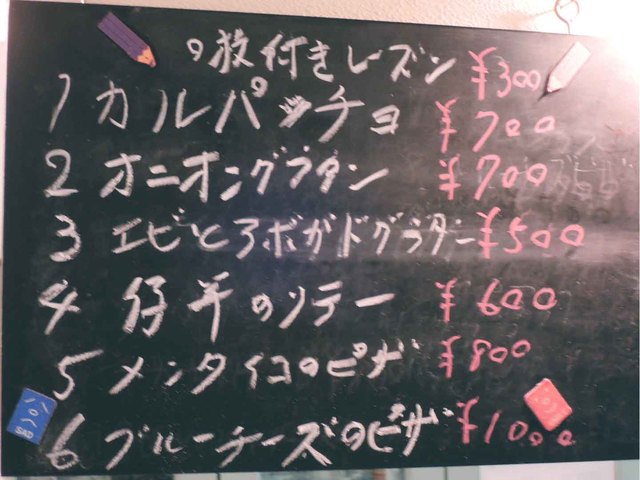 枝付きレーズン ¥300
1 カルパッチョ ¥700
2 オニオングラタン ¥700
3 エビとアボガドグラタン ¥500
4 仔羊のソテー ¥600
5 メンタイコのピザ ¥800
6 ブルーチーズのピザ ¥1000
SAD